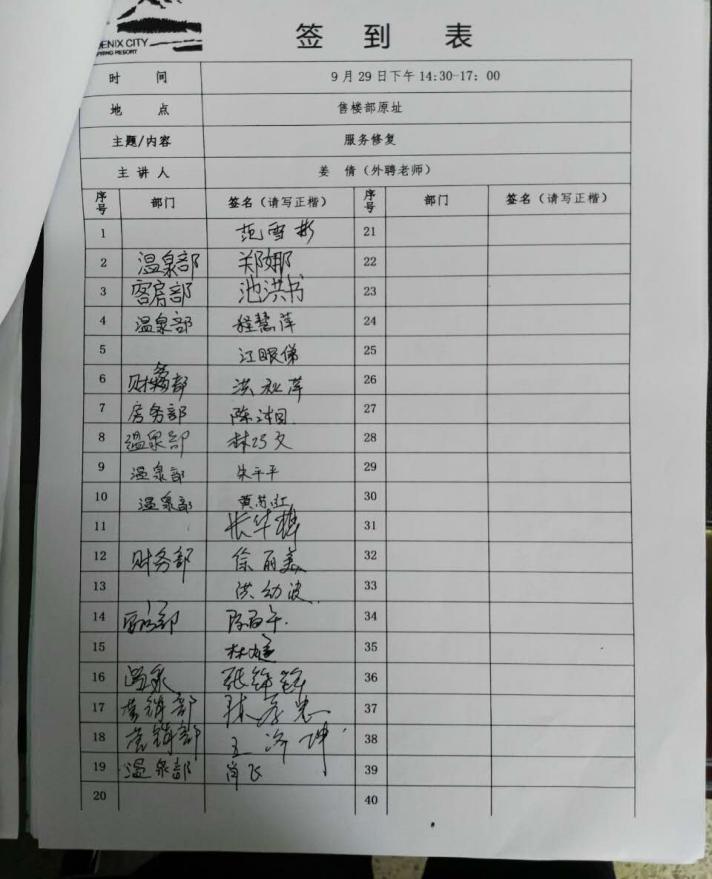 ENIX CITY
PRING RESORT
签 到 表
时 间 9月29日下午14:30-17:00
地 点 售楼部原址
主题/内容 服务修复
主 讲 人 姜 倩(外聘老师)
序号 部门 签名(请写正楷) 序号 部门 签名(请写正楷)
1 范雪彬 21
2 温泉部 郑娜 22
3 客房部 池洪书 23
4 温泉部 程慧萍 24
5 江眼俤 25
6 财务部 洪秋萍 26
7 房务部 陈湘 27
8 温泉部 林巧文 28
9 温泉部 朱平平 29
10 温泉部 黄红 30
11 31
12 财务部 徐丽美 32
13 洪幼波 33
14 34
15 林 35
16 温泉 张 36
17 营销部 林 忠 37
18 营销部 王 坤 38
19 温泉部 肖飞 39
20 40